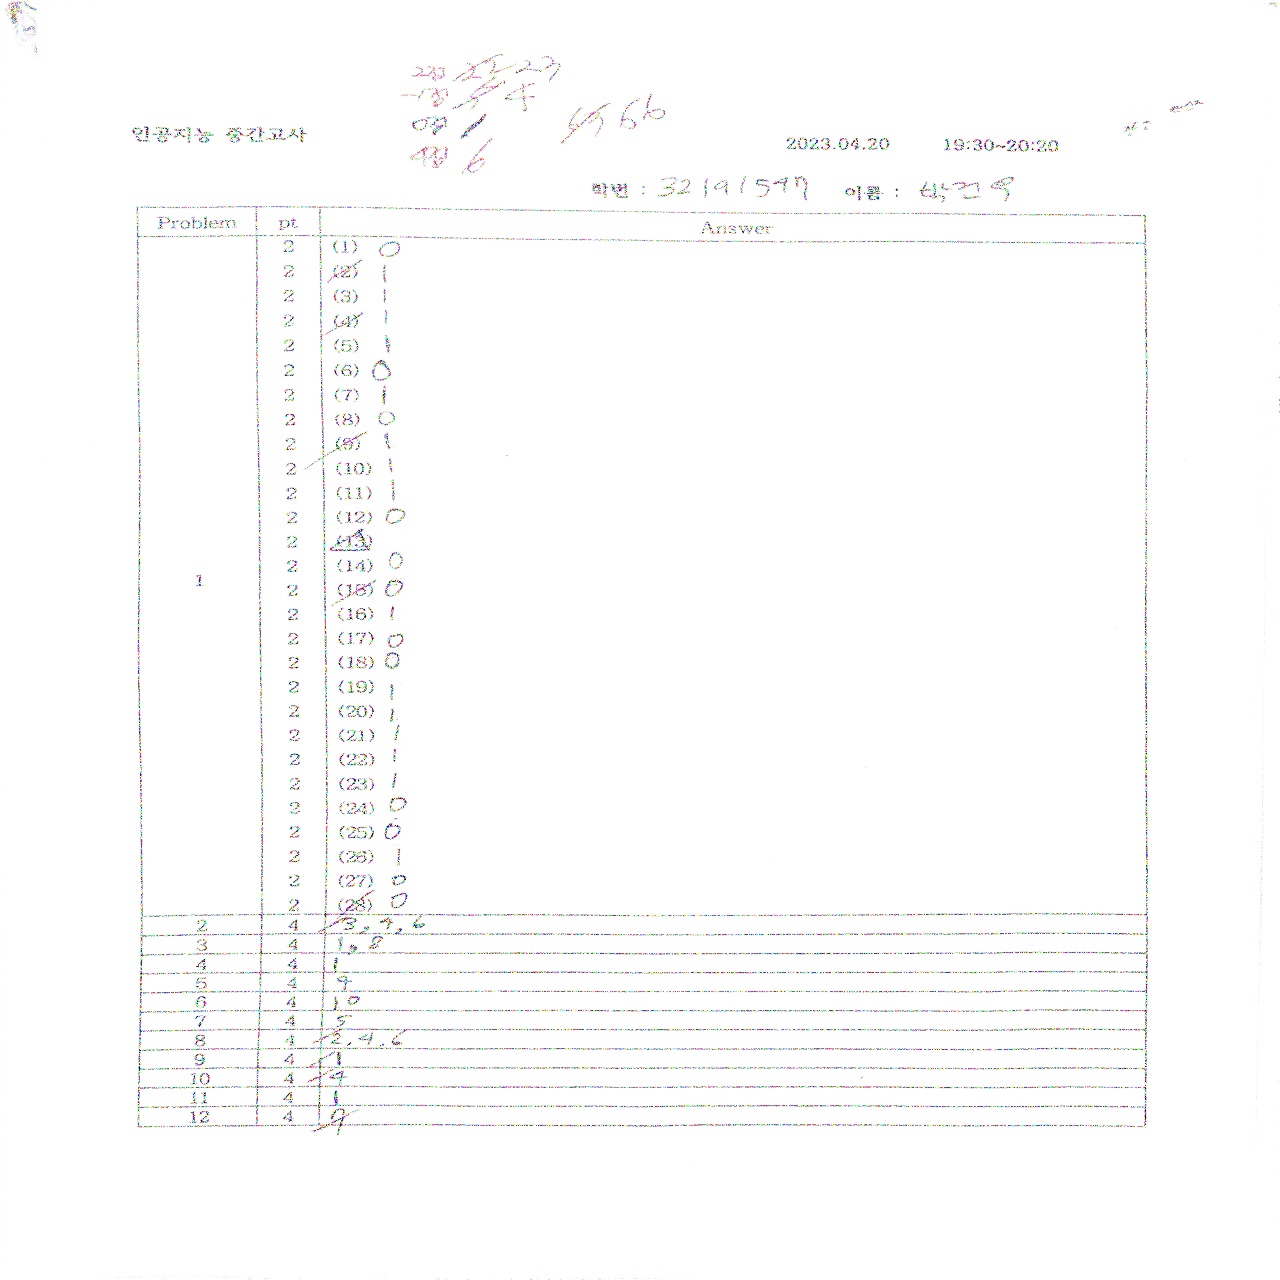 2점 23
-1점 4
0점 1
4점 6
66
인공지능 중간고사
2023.04.20 19:30~20:20
학번 : 32191597 이름 :
Problem pt Answer
1
2 (1) 0
2 (2) 1
2 (3) 1
2 (4) 1
2 (5) 1
2 (6) 0
2 (7) 1
2 (8) 0
2 (9) 1
2 (10) 1
2 (11) 1
2 (12) 0
2 (13)
2 (14) 0
2 (15) 0
2 (16) 1
2 (17) 0
2 (18) 0
2 (19) 1
2 (20) 1
2 (21) 1
2 (22) 1
2 (23) 1
2 (24) 0
2 (25) 0
2 (26) 1
2 (27) 0
2 (28) 0
2 4 3, 4, 6
3 4 1, 8
4 4 1
5 4 9
6 4 10
7 4 5
8 4 2, 4, 6
9 4 1
10 4 4
11 4 1
12 4 9